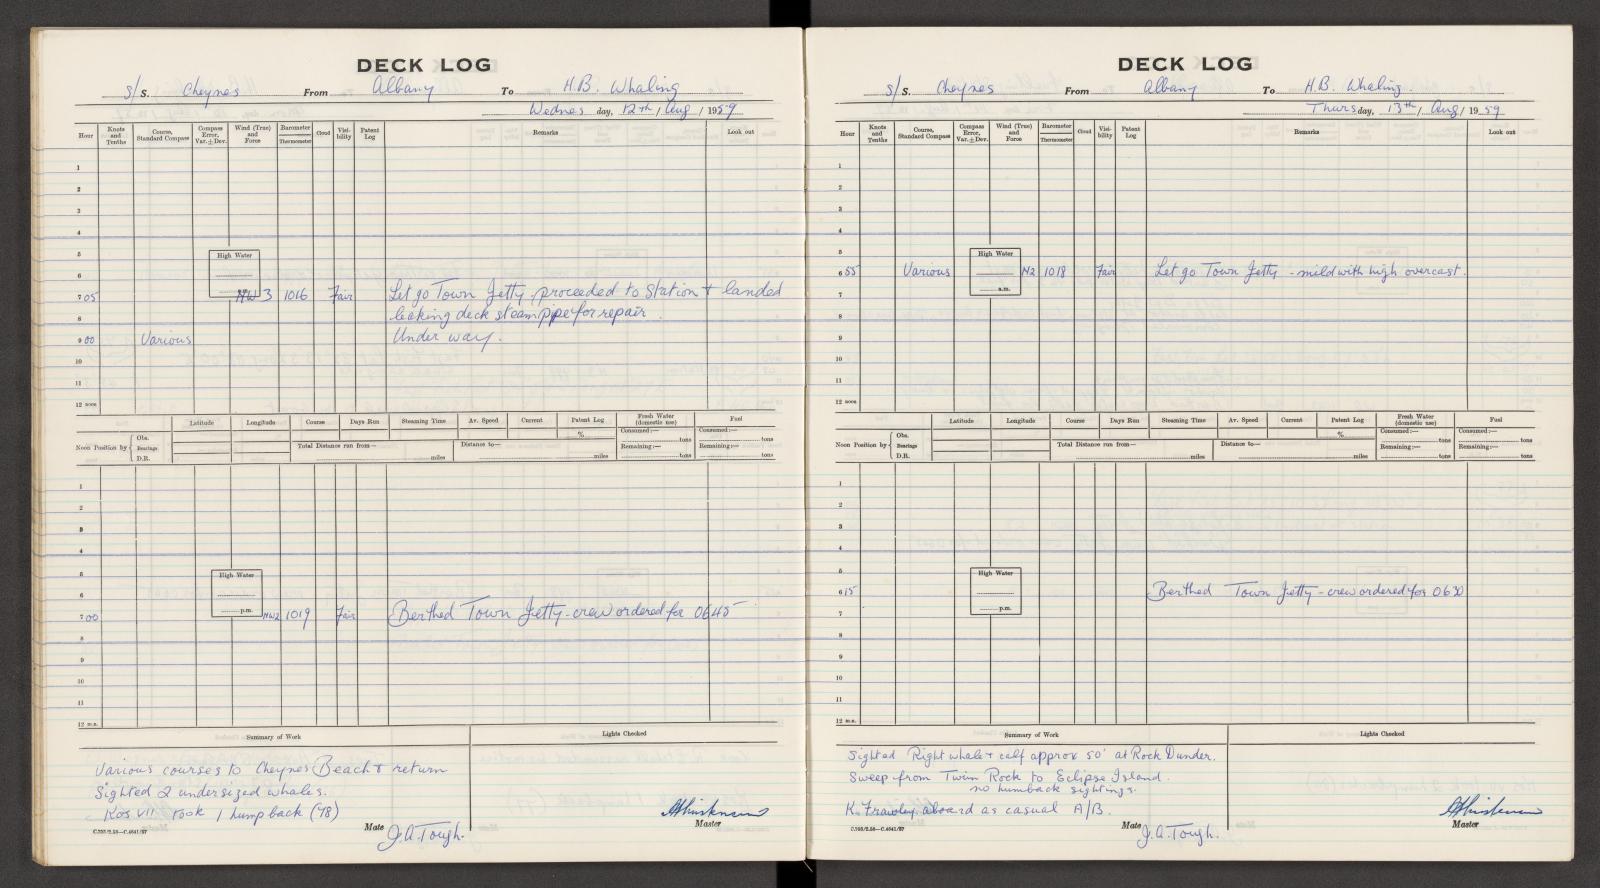 DECK LOG
s/S. Cheynes From Albany To H.B. Whaling
Wednesday, 12th / Aug / 1959
Hour Knots and Tenths Course, Standard Compass Compass Error, Var. ± Dev. Wind (True) and Force Barometer Thermometer Cloud Visibility Patent Log Remarks Look out
1
2
3
4
5
High Water
6
7 05 NW 3 1016 Fair Let go Town Jetty, proceeded to Station + landed
8 leaking deck steam pipe for repair.
9 00 Various Under way.
10
11
12 noon
Latitude Longitude Course Days Run Steaming Time Av. Speed Current Patent Log Fresh Water (domestic use) Fuel
Noon Position by Obs. Bearings D.R. Total Distance run from— miles Distance to— miles % Consumed:— tons Remaining:— tons Consumed:— tons Remaining:— tons
1
2
3
4
5
High Water
6
p.m.
7 00 NW2 1019 Fair Berthed Town Jetty - crew ordered for 0645
8
9
10
11
12 m.n.
Summary of Work Lights Checked
Various courses to Cheynes Beach & return
Sighted 2 undersized whales.
Kos VII took 1 humpback (78)
C.705/2.58—C.4641/57 Mate J.A. Tough. Master
DECK LOG
s/S. Cheynes From Albany To H.B. Whaling.
Thursday, 13th / Aug / 1959
Hour Knots and Tenths Course, Standard Compass Compass Error, Var. ± Dev. Wind (True) and Force Barometer Thermometer Cloud Visibility Patent Log Remarks Look out
1
2
3
4
5
High Water
6 55 Various N2 1018 Fair Let go Town Jetty - mild with high overcast.
a.m.
7
8
9
10
11
12 noon
Latitude Longitude Course Days Run Steaming Time Av. Speed Current Patent Log Fresh Water (domestic use) Fuel
Noon Position by Obs. Bearings D.R. Total Distance run from— miles Distance to— miles % Consumed:— tons Remaining:— tons Consumed:— tons Remaining:— tons
1
2
3
4
5
High Water
6 15 Berthed Town Jetty - crew ordered for 0630
p.m.
7
8
9
10
11
12 m.n.
Summary of Work Lights Checked
Sighted Right whale + calf approx 50' at Rock Dunder.
Sweep from Twin Rock to Eclipse Island.
no humback sightings.
K. Frawley aboard as casual A/B.
C.705/2.58—C.4641/57 Mate J.A. Tough. Master